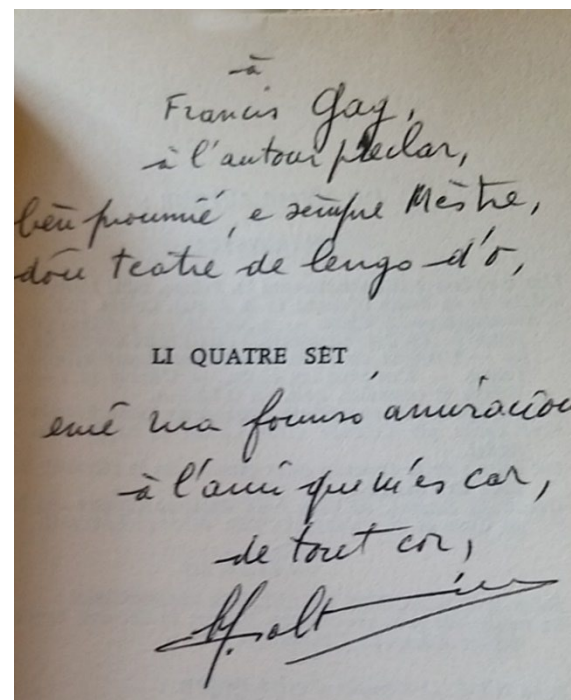 à
Francis Gag,
à l'autour preclar,
bèn proumié, e sèmpre Mèstre,
dóu teatre de lengo d'o,
LI QUATRE SÈT
emé ma founso amiracioun
à l'ami que m'es car,
de tout cor,